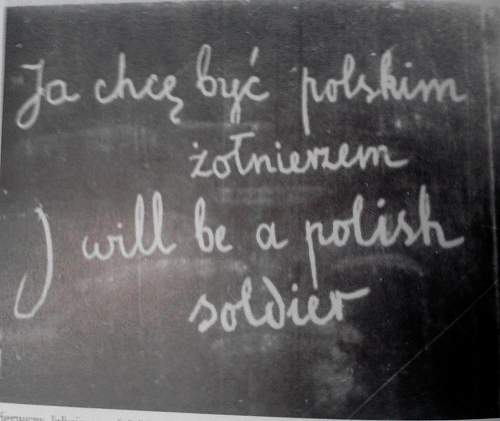 Ja chcę być polskim
żołnierzem
I will be a polish
soldier